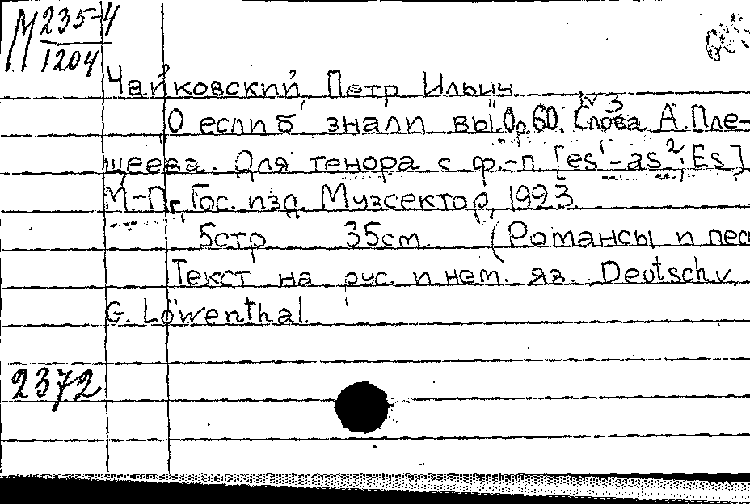 М 235-4
1204
Чайковский, Петр Ильич
О если б знали вы. Op. 60. № 3
Слова А. Пле-
щеева. Для тенора с ф.-п. [es¹-as²; Es]
М-П, Гос. изд. Музсектор, 1993.
5стр. 35см. (Романсы и пес
Текст на рус. и нем. яз. Deutsch v.
G. Löwenthal.
2372